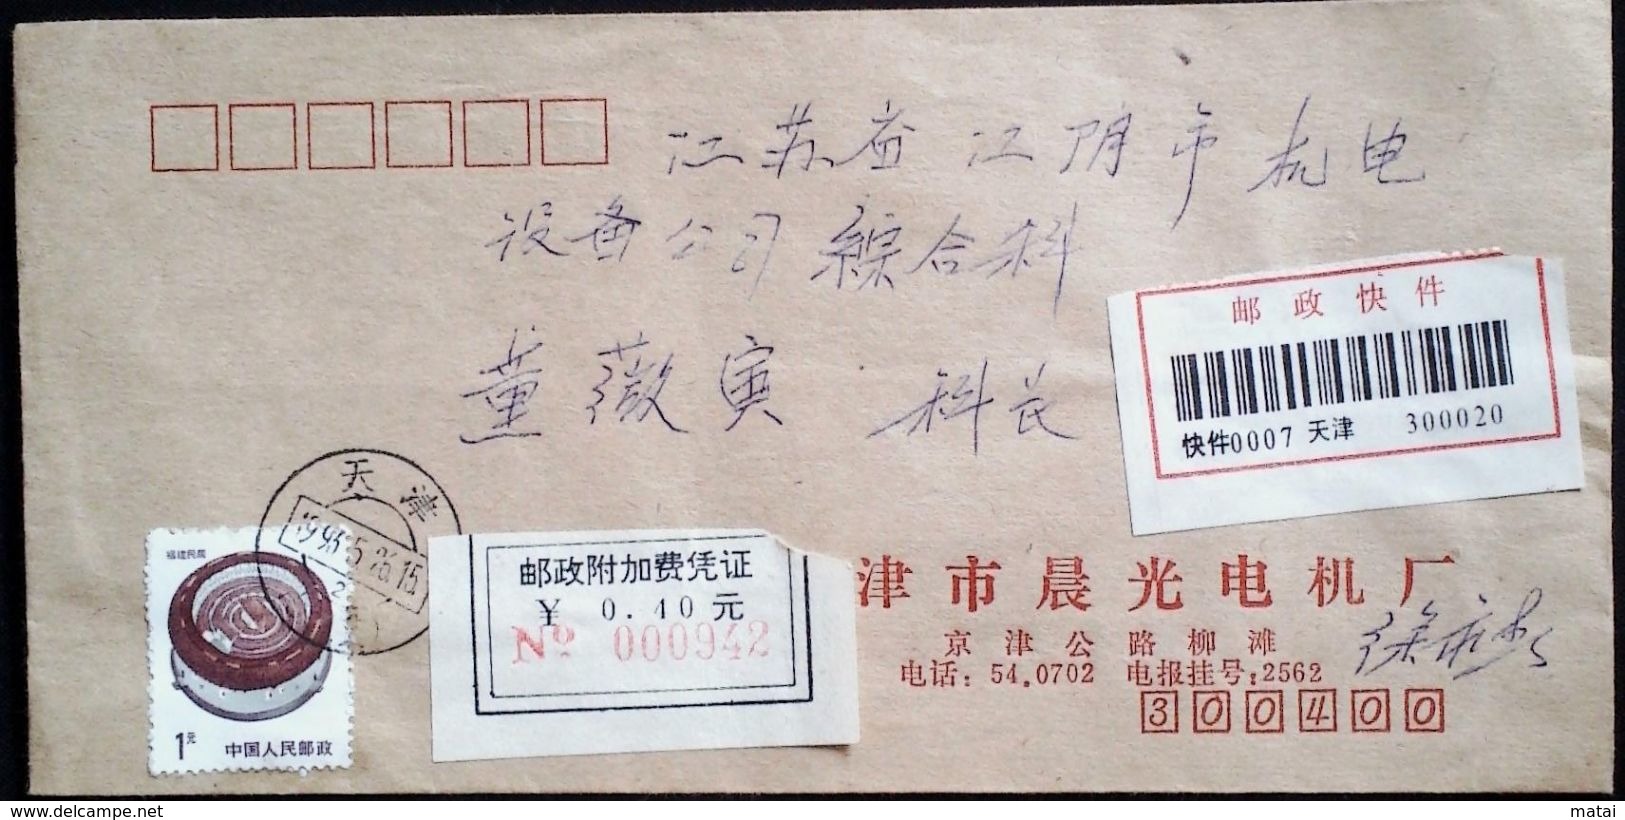 江苏省 江阴市 机电
设备公司 綜合科
董薇寅 科长
邮政快件
快件0007 天津 300020
天津
1993.5.26.15
福建民居
1元 中国人民邮政
邮政附加费凭证
¥ 0.40元
Nº 000942
津市晨光电机厂
京津公路柳滩
电话：54.0702 电报挂号：2562
300400
matai